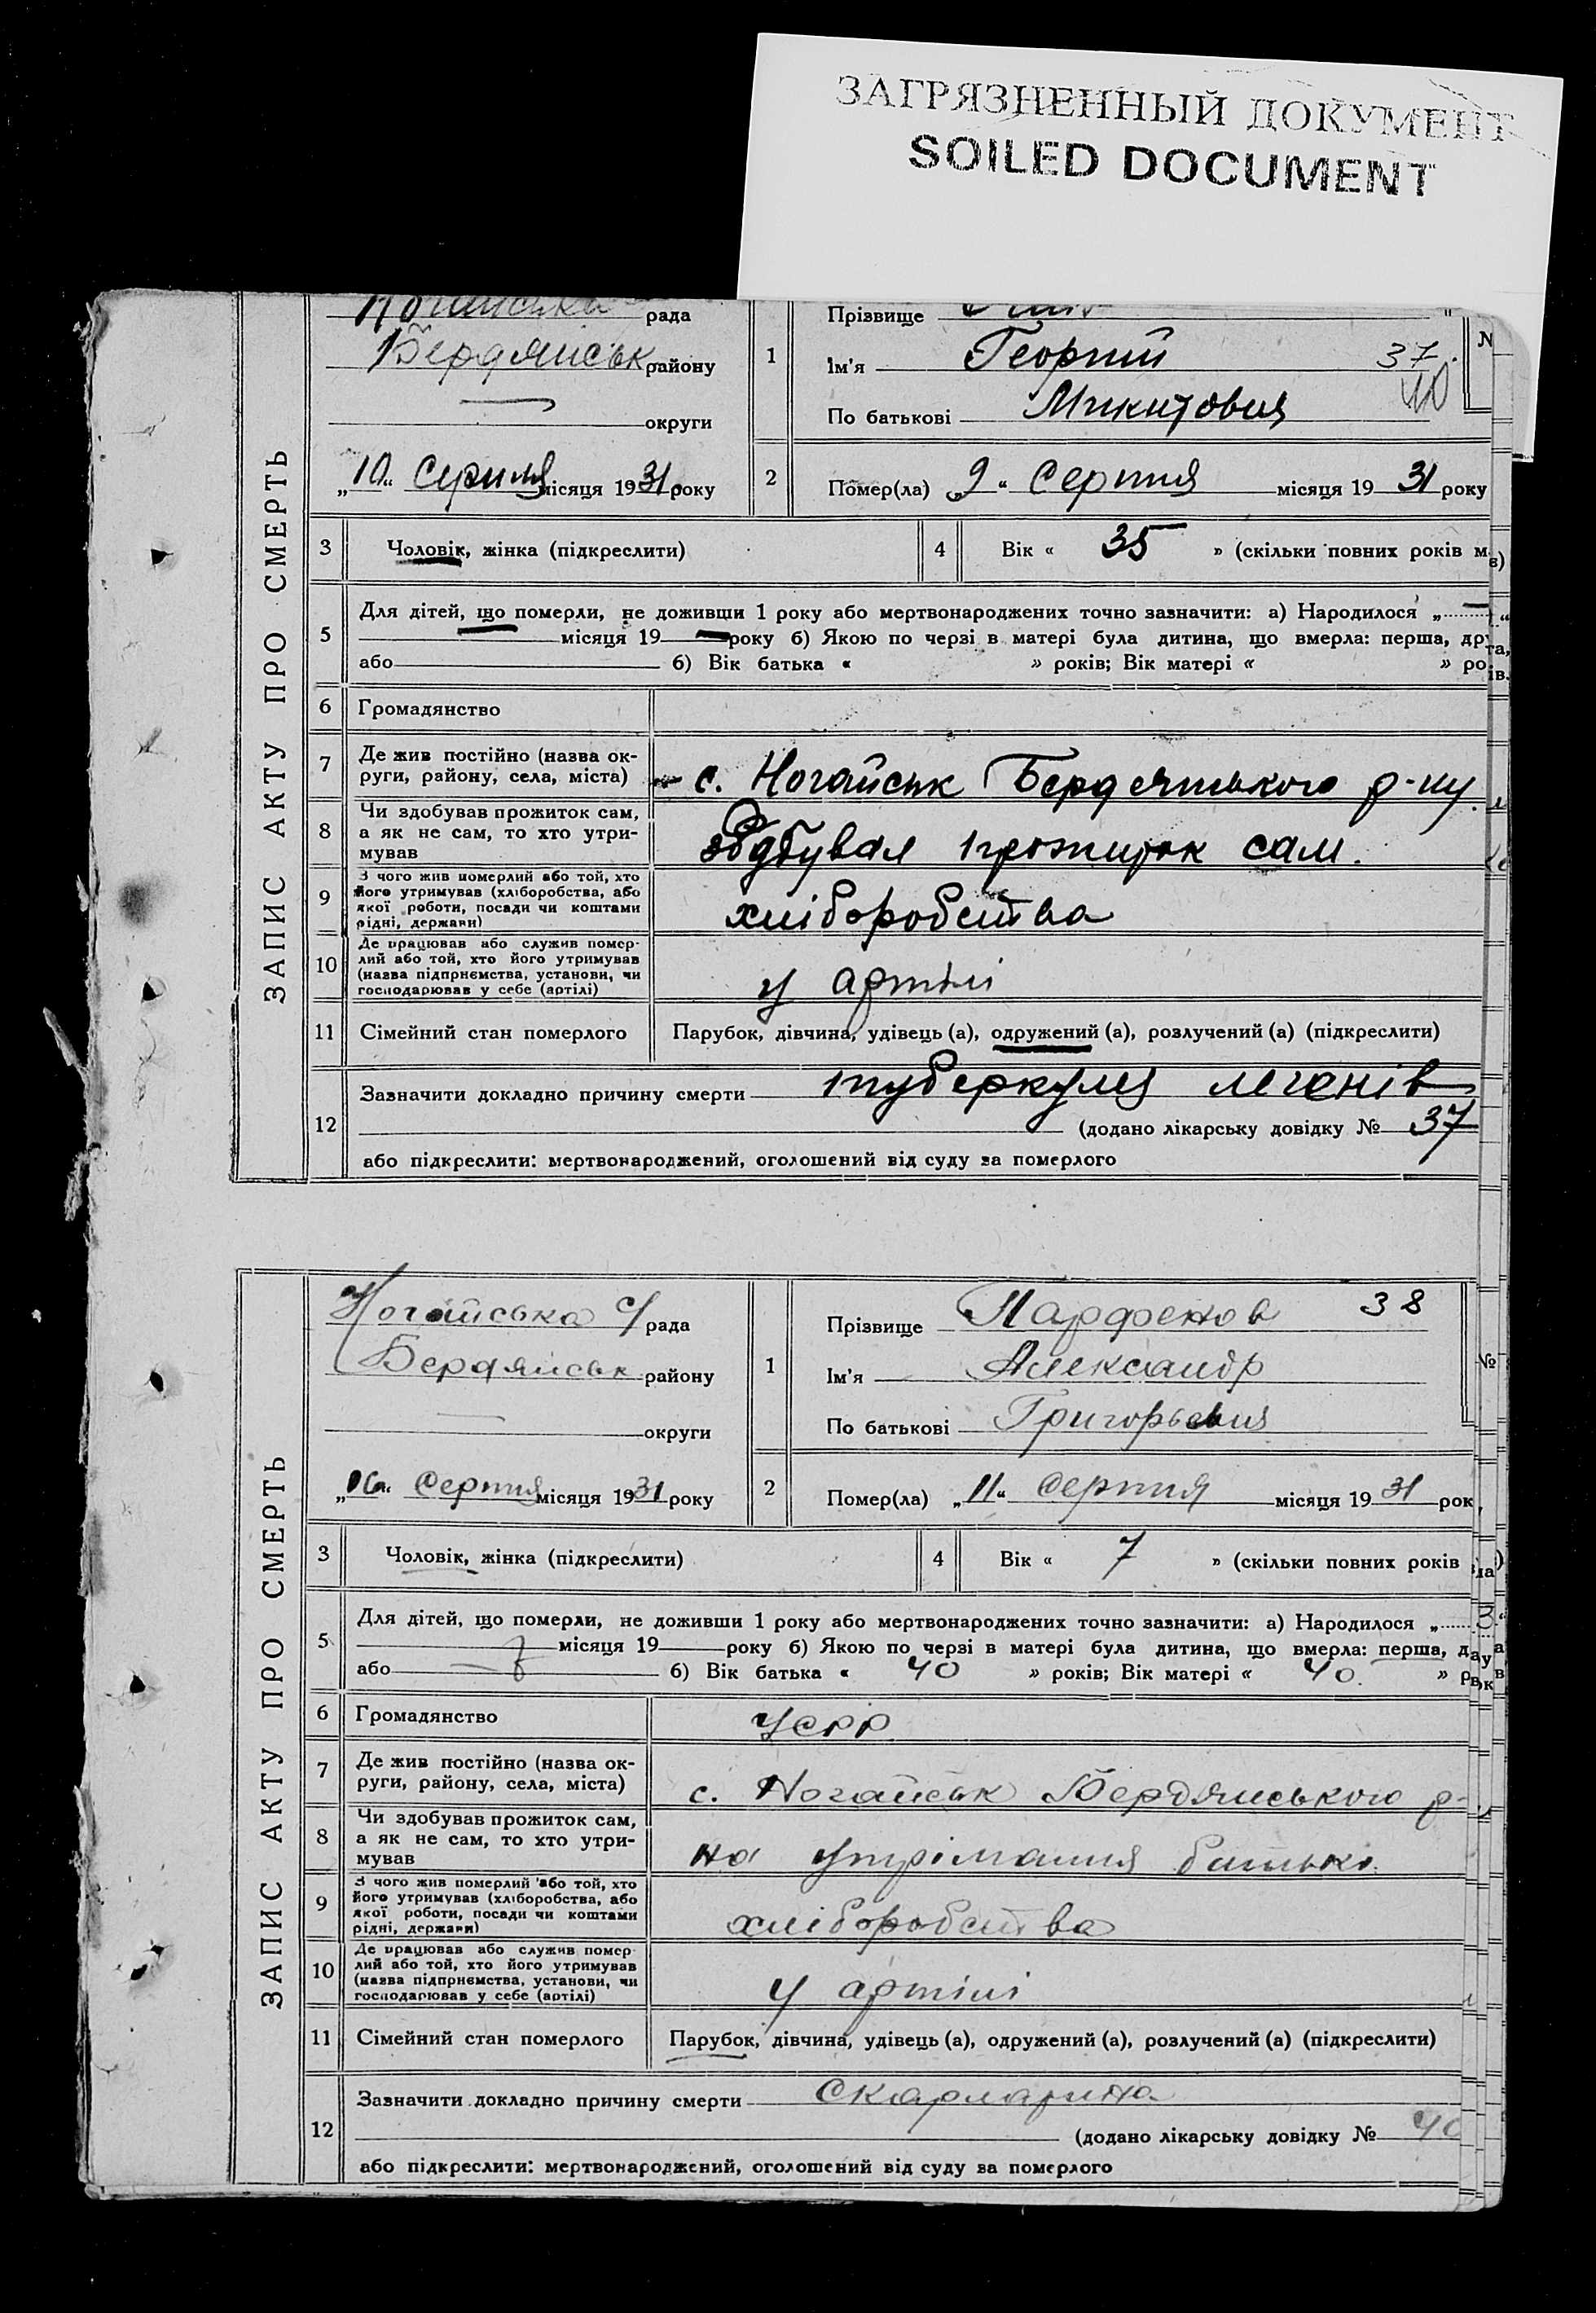 ЗАГРЯЗНЕННЫЙ ДОКУМЕНТ
SOILED DOCUMENT
ЗАПИС АКТУ ПРО СМЕРТЬ
Ногайська рада
Бердянськ району
— округи
„10“ Серпня місяця 1931 року
1
Прізвище
Ім'я Георгий 37
По батькові Микитович 40
2
Помер(ла) „9“ Серпня місяця 1931 року
3 Чоловік, жінка (підкреслити)
4 Вік « 35 » (скільки повних років м
5 Для дітей, що померли, не доживши 1 року або мертвонароджених точно зазначити: а) Народилося „ “
місяця 19 — року б) Якою по черзі в матері була дитина, що вмерла: перша, др
або б) Вік батька « » років; Вік матері « » ро
6 Громадянство
7 Де жив постійно (назва ок-
руги, району, села, міста) с. Ногайськ Бердянського р-ну.
8 Чи здобував прожиток сам,
а як не сам, то хто утри-
мував
здобував прожиток сам.
9 З чого жив померлий або той, хто
його утримував (хліборобства, або
якої роботи, посади чи коштами
рідні, держави)
хліборобства
10 Де працював або служив помер-
лий або той, хто його утримував
(назва підприємства, установи, чи
господарював у себе (артілі)
у артілі
11 Сімейний стан померлого Парубок, дівчина, удівець (а), одружений (а), розлучений (а) (підкреслити)
12 Зазначити докладно причину смерти туберкульз легенів
(додано лікарську довідку № 37
або підкреслити: мертвонароджений, оголошений від суду за померлого
ЗАПИС АКТУ ПРО СМЕРТЬ
Ногайська с/рада
Бердянськ району
— округи
Серпня місяця 1931 року
1
Прізвище Парфенов 38
Ім'я Александр
По батькові Григорьевич
№
2
Помер(ла) „11“ серпня місяця 1931 рок
3 Чоловік, жінка (підкреслити)
4 Вік « 7 » (скільки повних років
5 Для дітей, що померли, не доживши 1 року або мертвонароджених точно зазначити: а) Народилося „
місяця 19 року б) Якою по черзі в матері була дитина, що вмерла: перша, д
або б) Вік батька « 40 » років; Вік матері « 40. » р
6 Громадянство УСРР
7 Де жив постійно (назва ок-
руги, району, села, міста) с. Ногайськ Бердянського р-
8 Чи здобував прожиток сам,
а як не сам, то хто утри-
мував
на утрімання батькі.
9 З чого жив померлий або той, хто
його утримував (хліборобства, або
якої роботи, посади чи коштами
рідні, держави)
хліборобства
10 Де працював або служив помер
лий або той, хто його утримував
(назва підприємства, установи, чи
господарював у себе (артілі)
у артілі
11 Сімейний стан померлого Парубок, дівчина, удівець (а), одружений (а), розлучений (а) (підкреслити)
12 Зазначити докладно причину смерти Скарлатина
(додано лікарську довідку № 40
або підкреслити: мертвонароджений, оголошений від суду за померлого